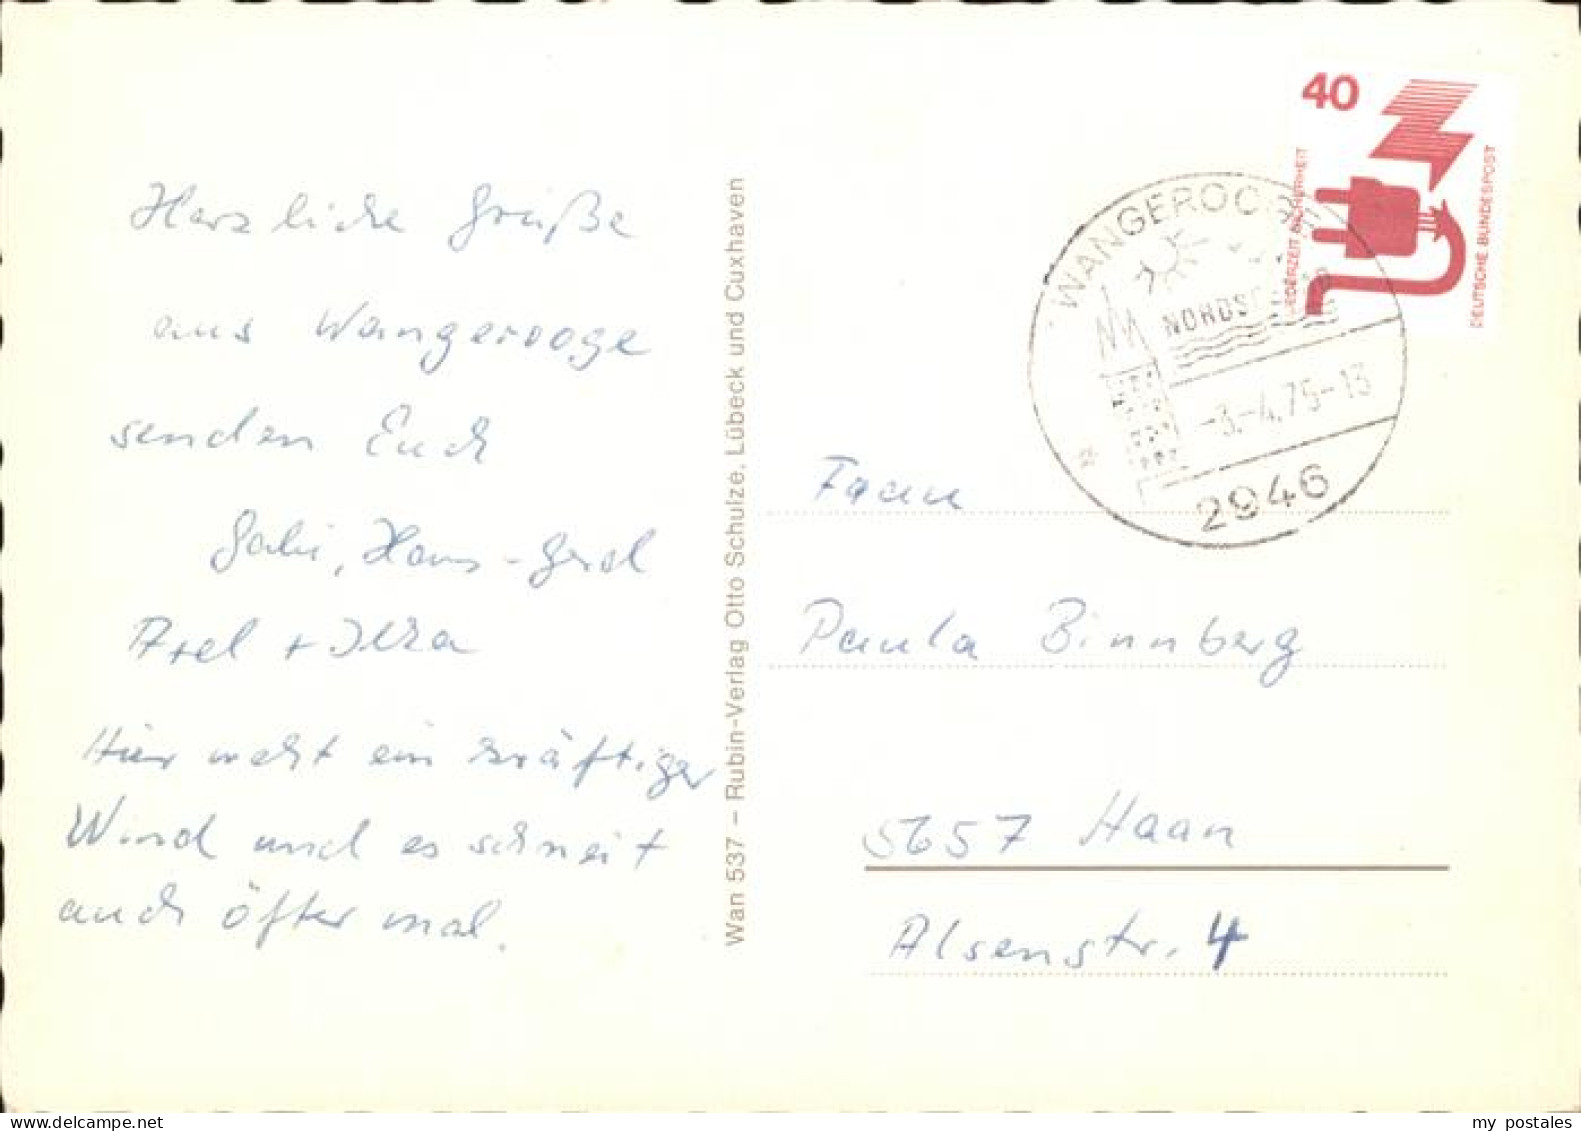 Herzliche Grüße
aus Wangerooge
senden Euch
Gabi, Hans-Gerd
Axel + Ilka
Hier weht ein kräftiger
Wind und es schneit
auch öfter mal.
Wan 537 – Rubin-Verlag Otto Schulze, Lübeck und Cuxhaven
40
JEDERZEIT SICHERHEIT
DEUTSCHE BUNDESPOST
WANGEROOGE
-3.-4.75-13
2946
Frau
Paula Binnberg
5657 Haan
Alsenstr. 4
my postales